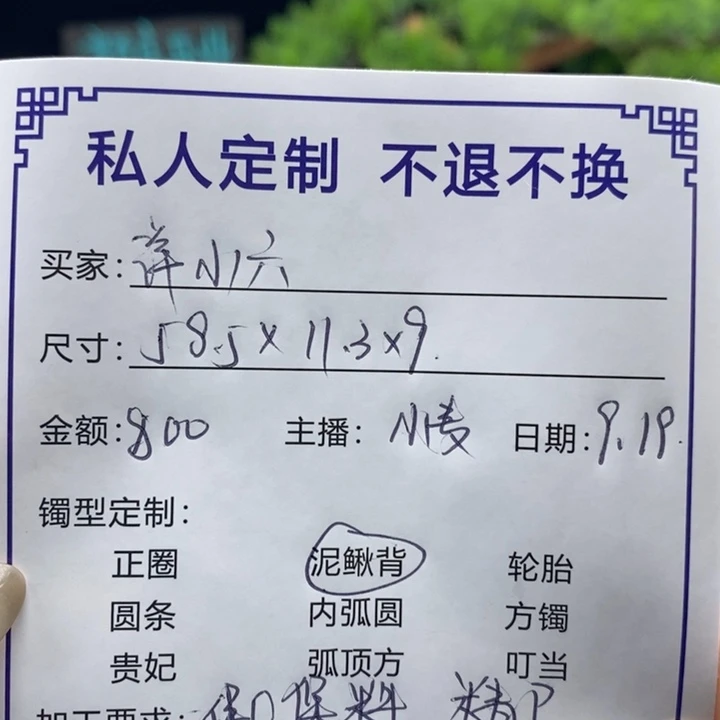 私人定制 不退不换
买家: 薛小六
尺寸: 58.5×11.3×9.
金额: 800 主播: 小凌 日期: 9.19.
镯型定制:
正圈 泥鳅背 轮胎
圆条 内弧圆 方镯
贵妃 弧顶方 叮当
加工要求: